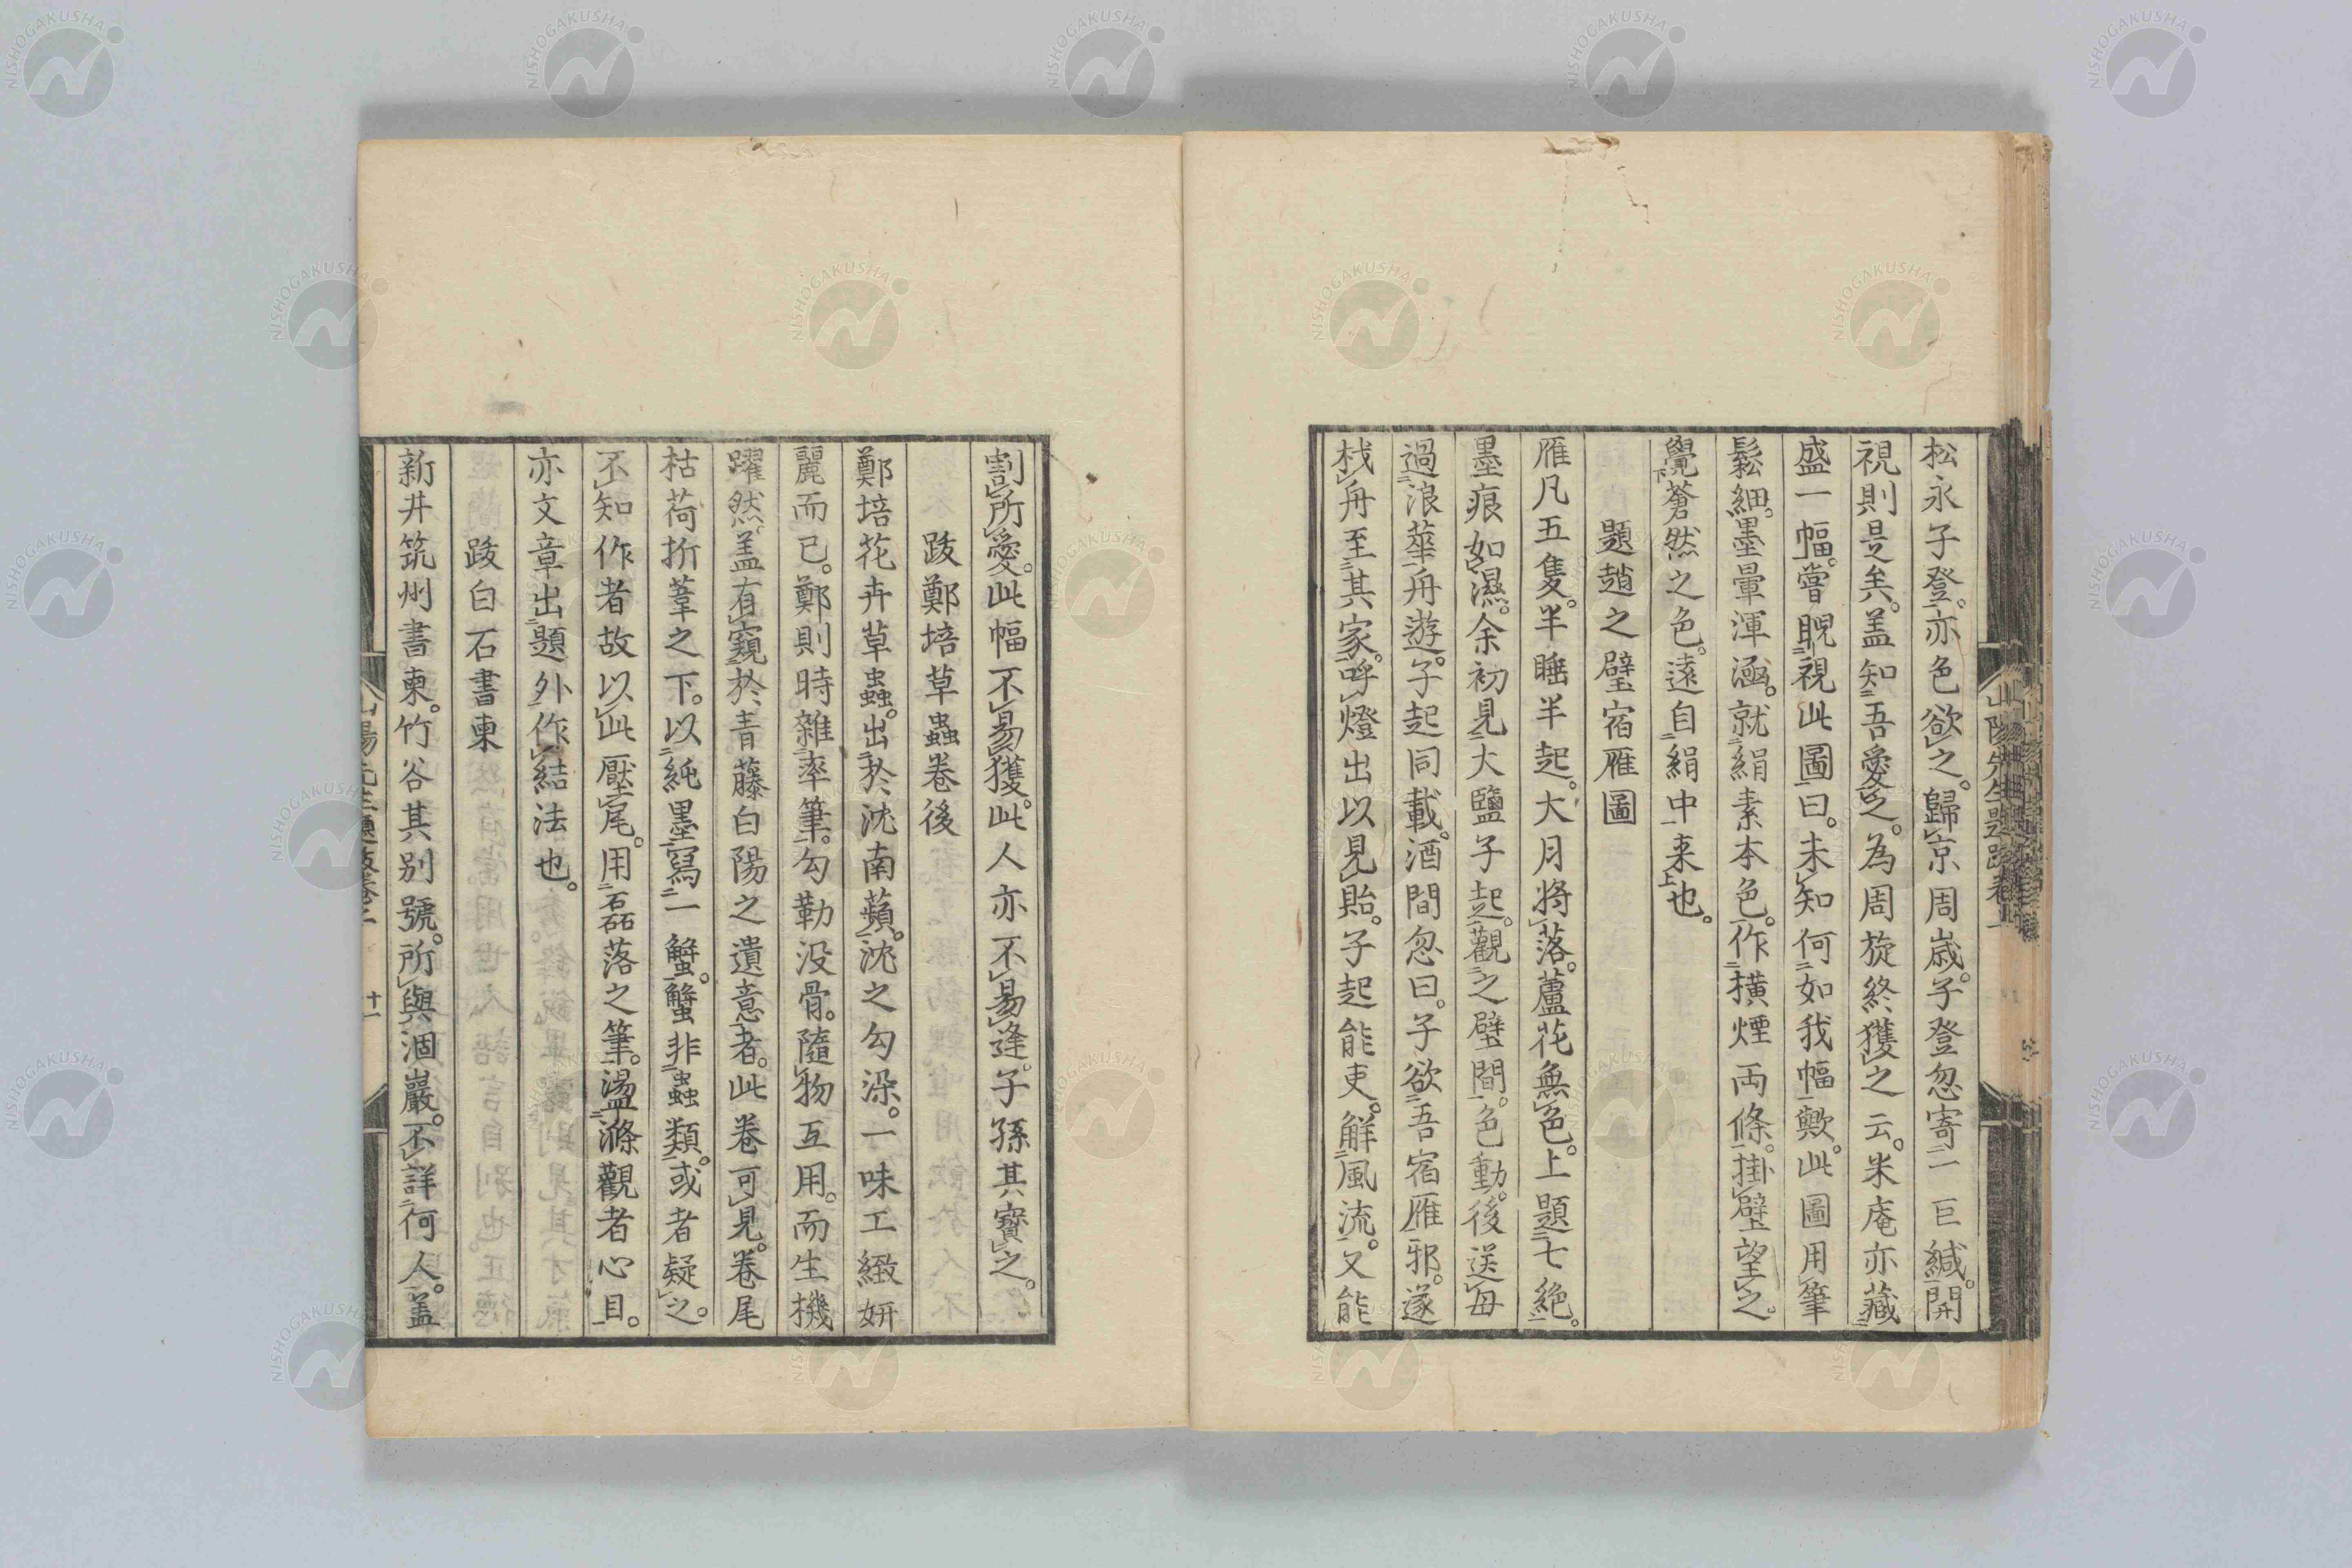 松永子登。亦色欲之。歸京周歳。子登忽寄一巨緘。開
視則是矣。蓋知吾愛之。為周旋終獲之云。米庵亦藏
盛一幅。嘗睨視此圖曰。未知何如我幅歟。此圖用筆
鬆細。墨暈渾涵。就絹素本色。作橫煙両條。掛壁望之。
覺蒼然之色。遠自絹中来也。
題趙之璧宿雁圖
雁凡五隻。半睡半起。大月将落。蘆花無色。上題七絶。
墨痕如濕。余初見大鹽子起。觀之壁間。色動。後送母
過浪華。舟遊。子起同載。酒間忽曰。子欲吾宿雁邪。遂
栈舟至其家。呼燈出以見貽。子起能吏。解風流。又能
割所愛。此幅不易獲。此人亦不易逢。子孫其寳之。
跋鄭培草蟲卷後
鄭培花卉草蟲。出於沈南蘋。沈之勾染。一味工緻妍
麗而已。鄭則時雜率筆。勾勒没骨。隨物互用。而生機
躍然。蓋有窺於青藤白陽之遺意者。此卷可見。卷尾
枯荷折葦之下。以純墨寫一蟹。蟹非蟲類。或者疑之。
不知作者故以此壓尾。用磊落之筆。盪滌觀者心目。
亦文章出題外作結法也。
跋白石書柬
新井筑州書柬。竹谷其別號。所與涸巖。不詳何人。蓋
山陽先生題跋卷上
NISHOGAKUSHA